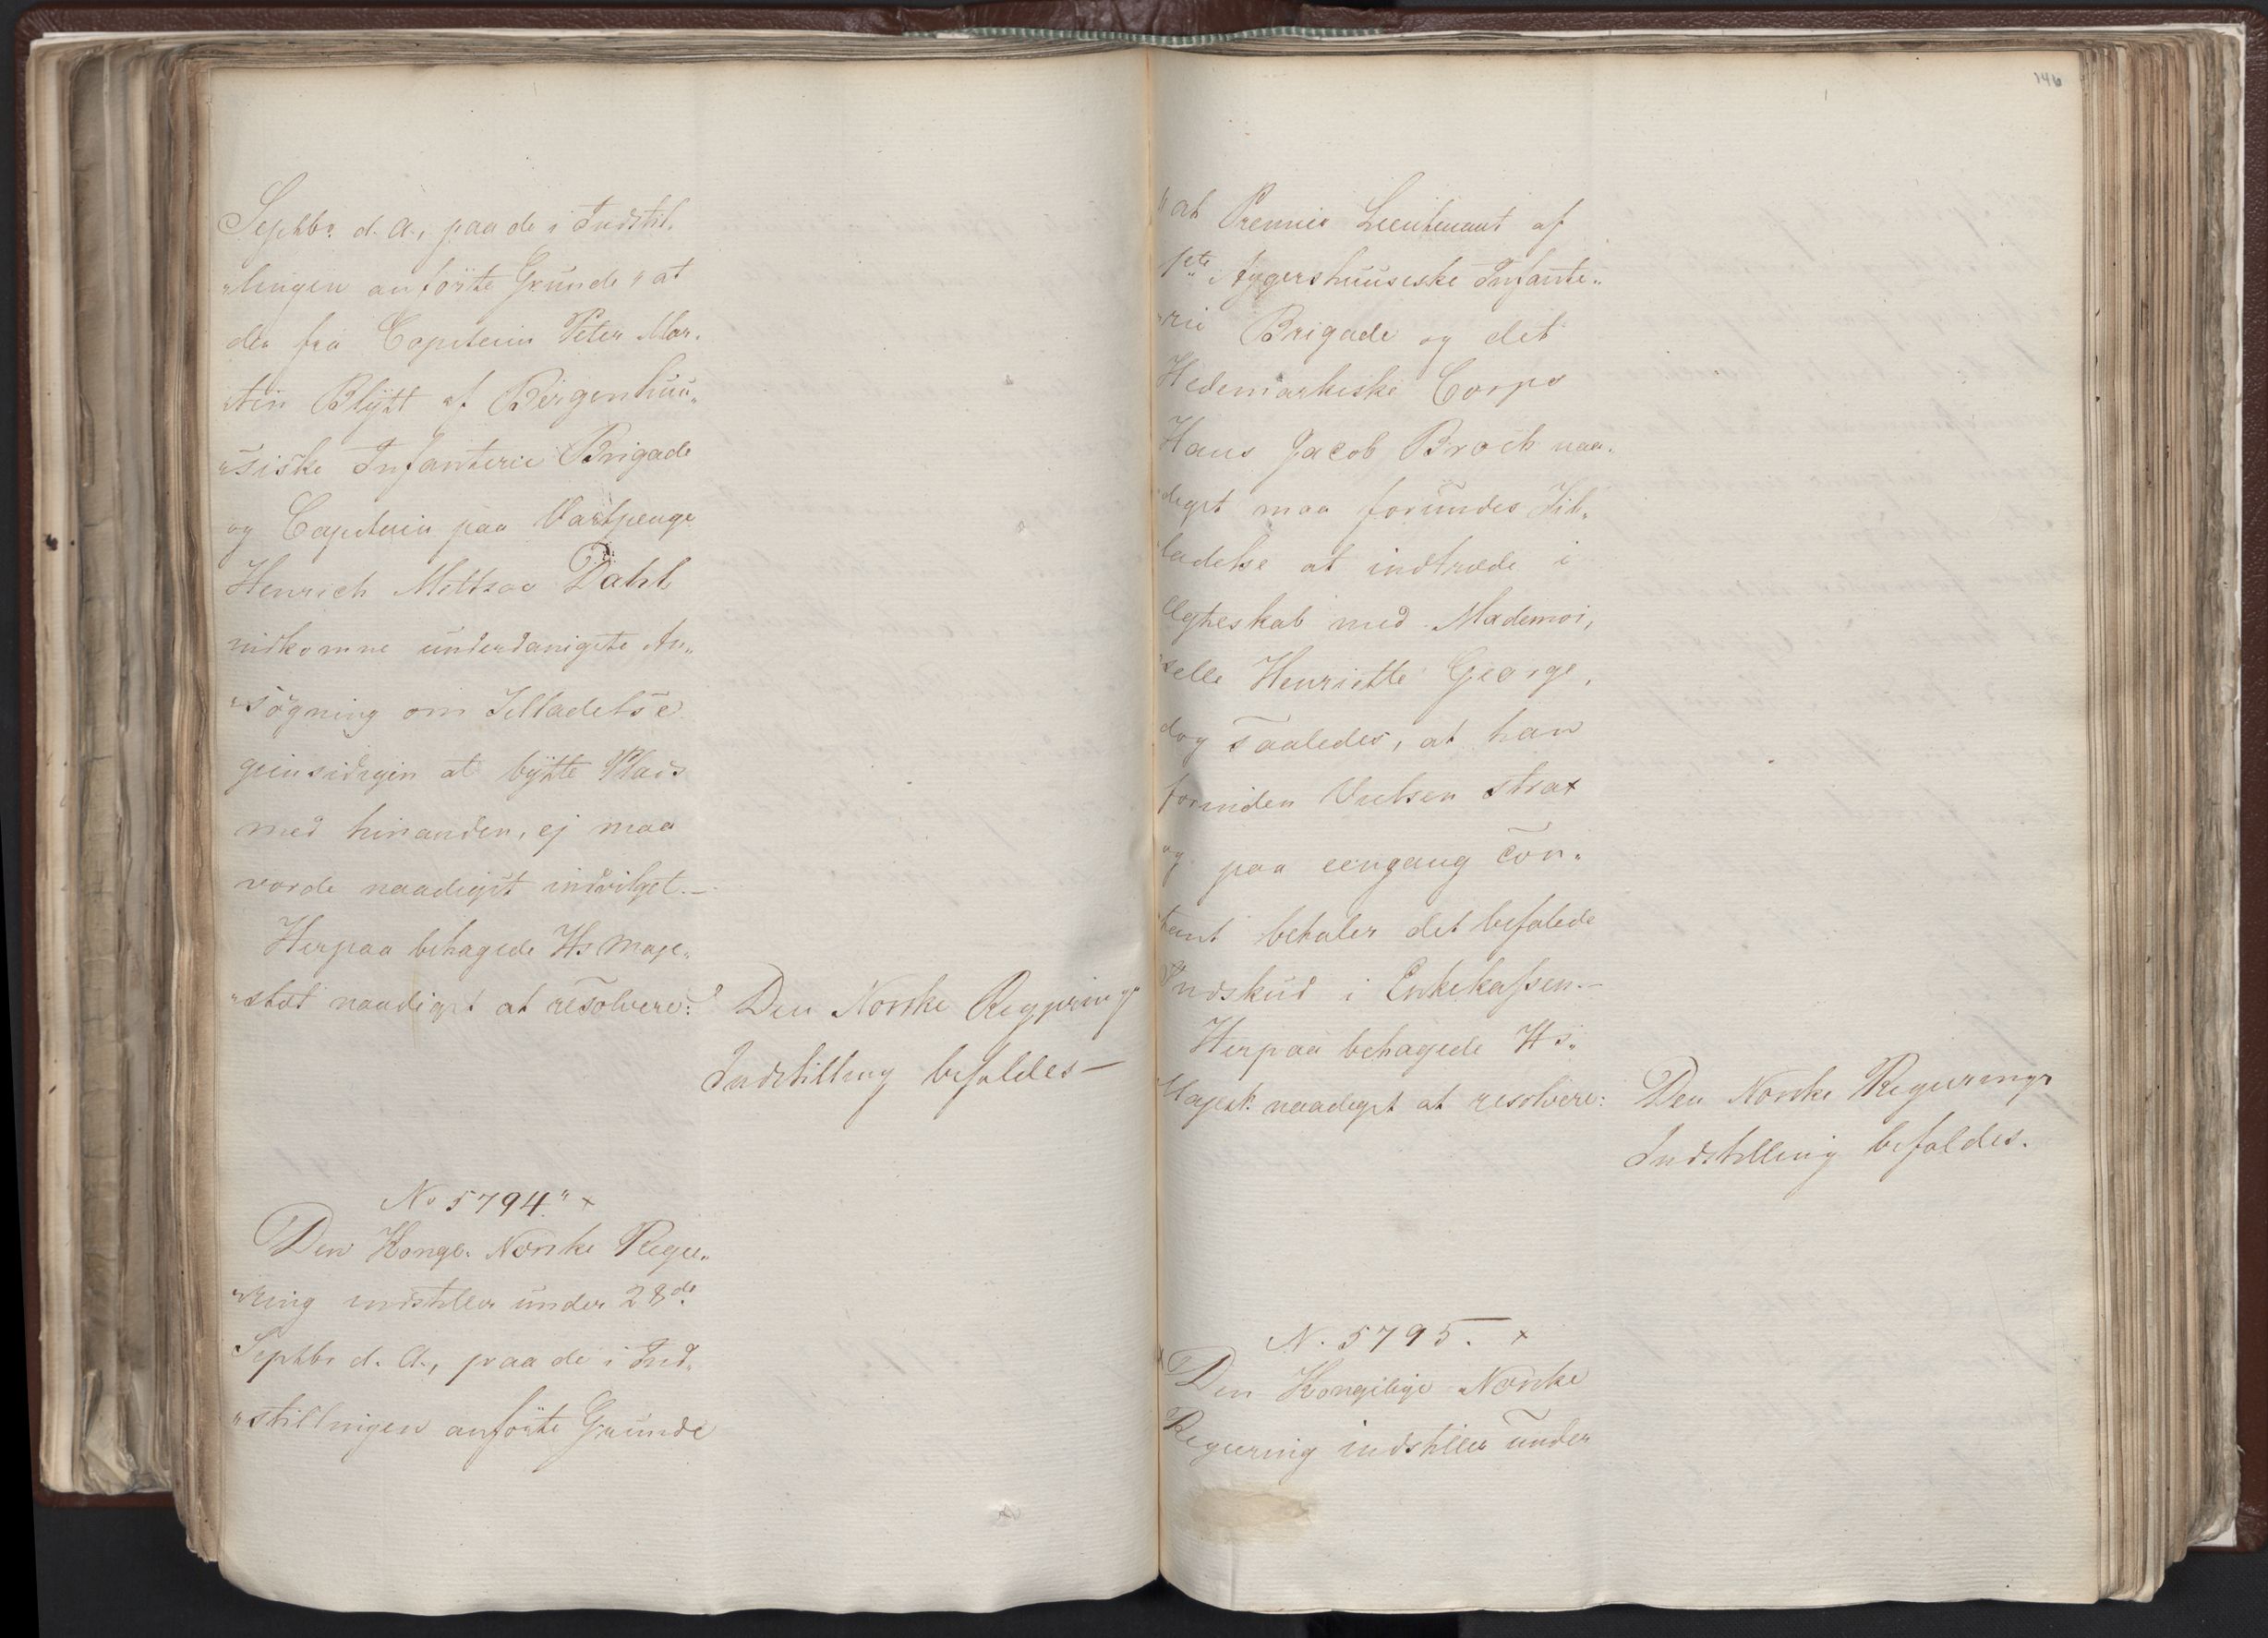 Septbr. d. A., paa de i Indstil„
„lingen anförte Grunde „at
den fra Capitain Peter Mar„
„tin Blÿtt af Bergenhuu„
„siske Infanterie Brigade
og Capitain paa Vartpenge
Henrich Meltzao Dahl
indkomne underdanigste An„
„sögning om Tilladelse
gjensidigen at bÿtte Plads
med hinanden, ej maa
vorde naadigst indvilget.—
Herpaa behagede Hs Maje„
„stæt naadigst at resolvere:
Den Norske Regjerings
Indstilling befaldes—
No 5794." x
Den Kongl. Norske Regje„
„ring indstiller under 28de
Septbr d. A., paa de i Ind„
„stillingen anförte Grunde
146
„at Premier Lieutenant af
1ste Aggershuusiske Infante„
„rie Brigade og det
Hedemarkiske Corps
Hans Jacob Broch naa„
„digst maa forundes Til„
„ladelse at indtræde i
Ægteskab med Mademoi„
„selle Henriette George,
dog saaledes, at han
forinden Vielsen strax
og paa eengang con„
„tant betaler det befalede
Indskud i Enkekassen.—
Herpaa behagede Hs.
Majest. naadigst at resolvere:
Den Norske Regjerings
Indstilling befaldes.
N. 5795. x
Den Kongelige Norske
Regjering indstiller under